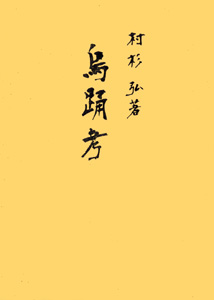 村杉 弘著
烏踊考